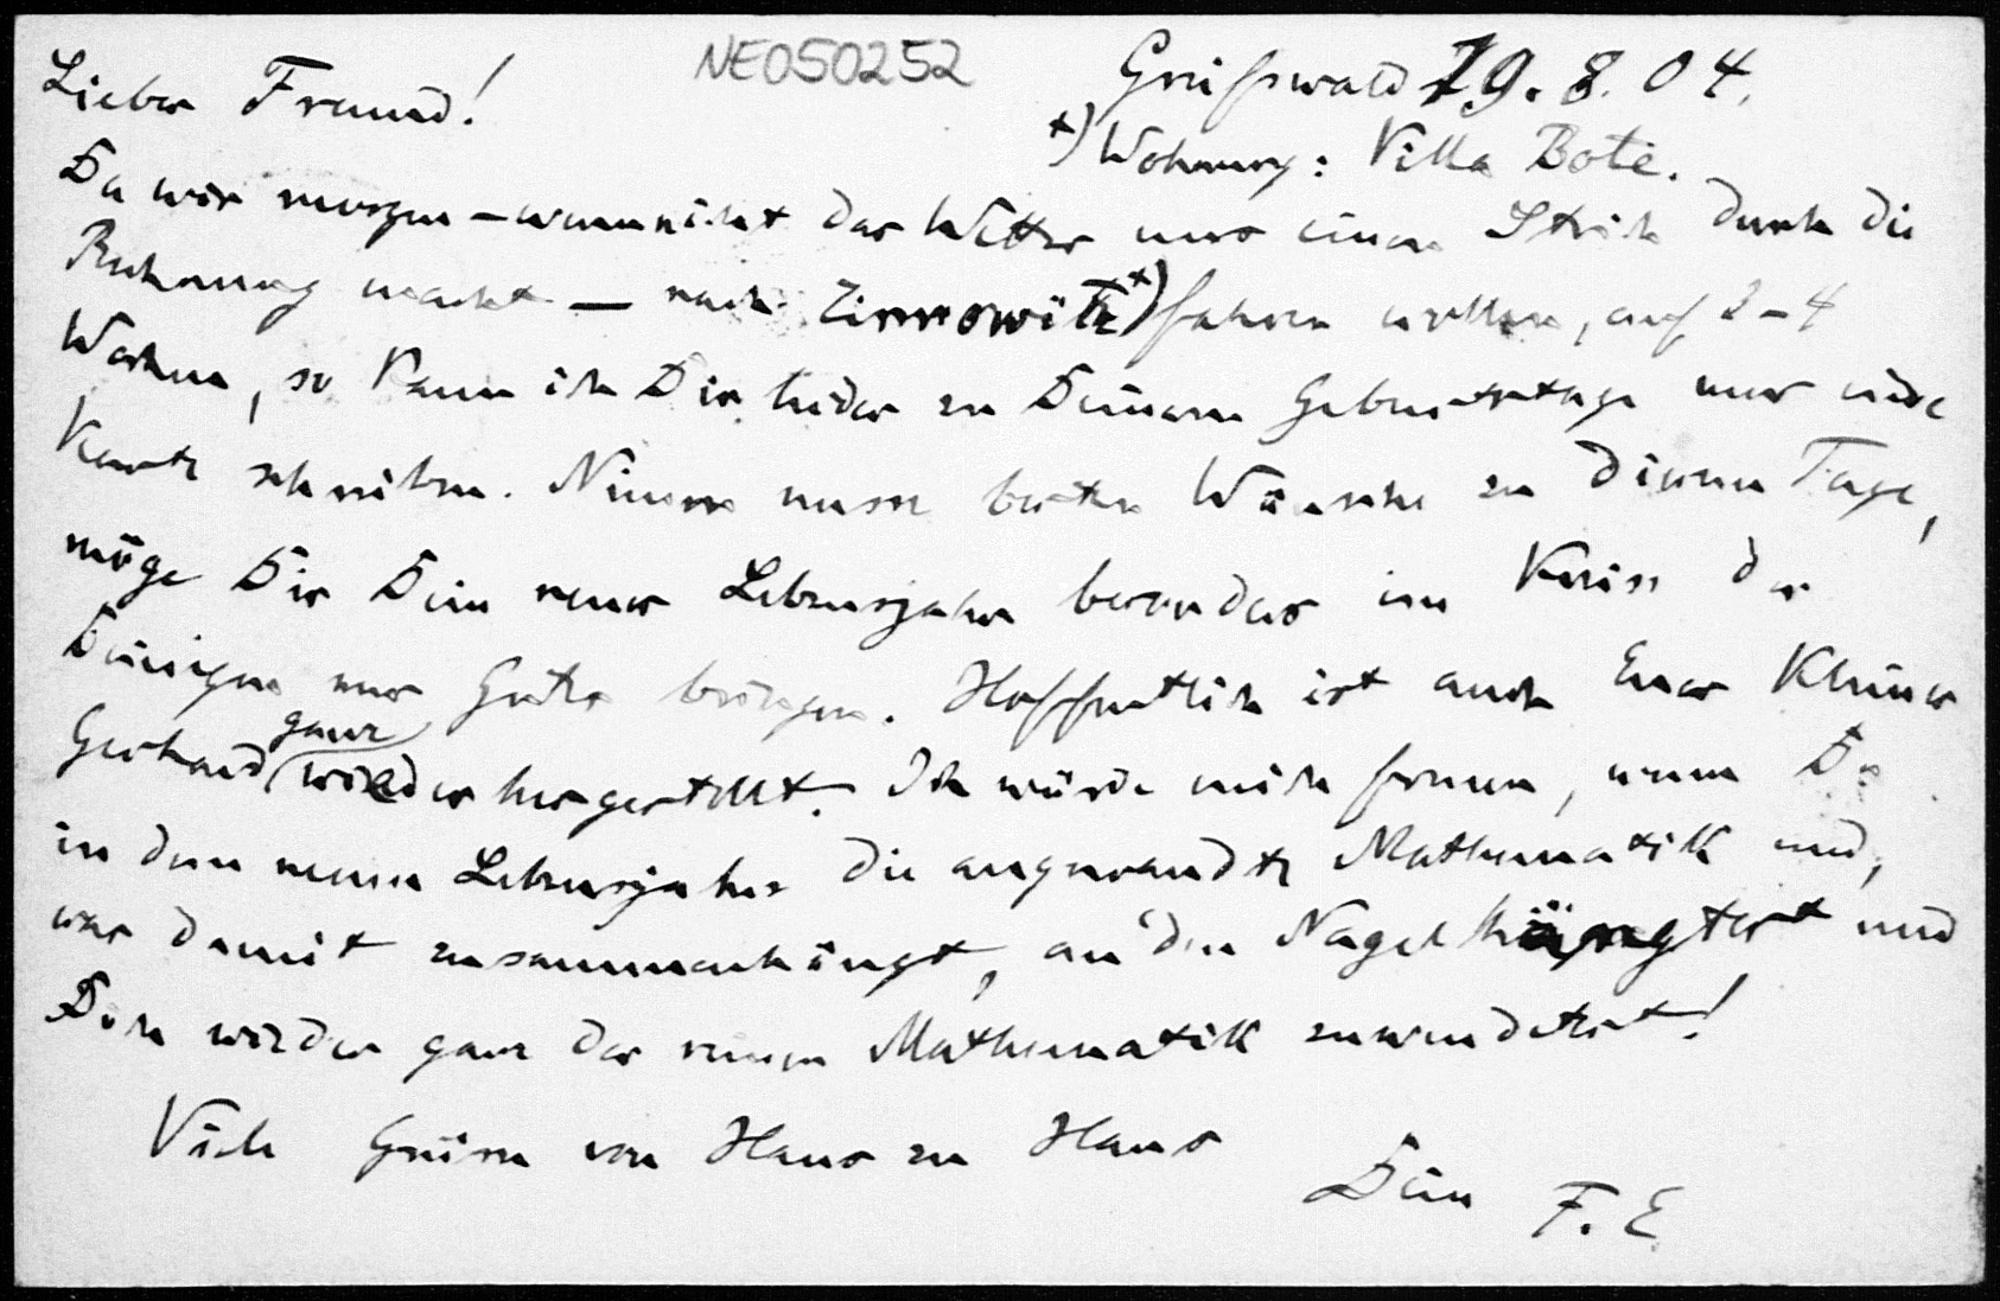 NE050252
Greifswald 19. 8. 04.
Lieber Freund!
*) Wohnung: Villa Bote.
Da wir morgen – wenn nicht das Wetter uns einen Strich durch die
Rechnung macht – nach Zinnowitz *) fahren wollen, auf 3–4
Wochen, so kann ich Dir leider zu Deinem Geburtstage nur eine
Karte schreiben. Nimm unsre besten Wünsche zu diesem Tage,
möge Dir Dein neues Lebensjahr besonders im Kreise der
Deinigen nur Gutes bringen. Hoffentlich ist auch Euer Kleiner
Gerhard ganz wieder hergestellt. Ich würde mich freuen, wenn Du
in dem neuen Lebensjahre die angewandte Mathematik und,
was damit zusammenhängt, an den Nagel hängtest und
Dich wieder ganz der reinen Mathematik zuwendetest!
Viele Grüsse von Haus zu Haus
Dein F. E